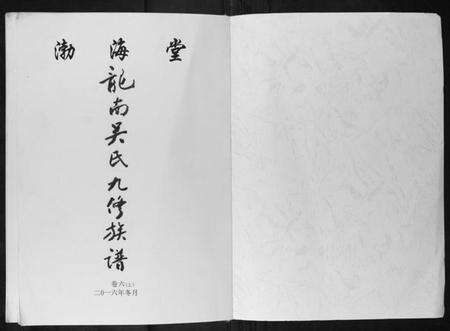 渤海堂
龍南吴氏九修族谱
卷六(上)
二0一六年冬月